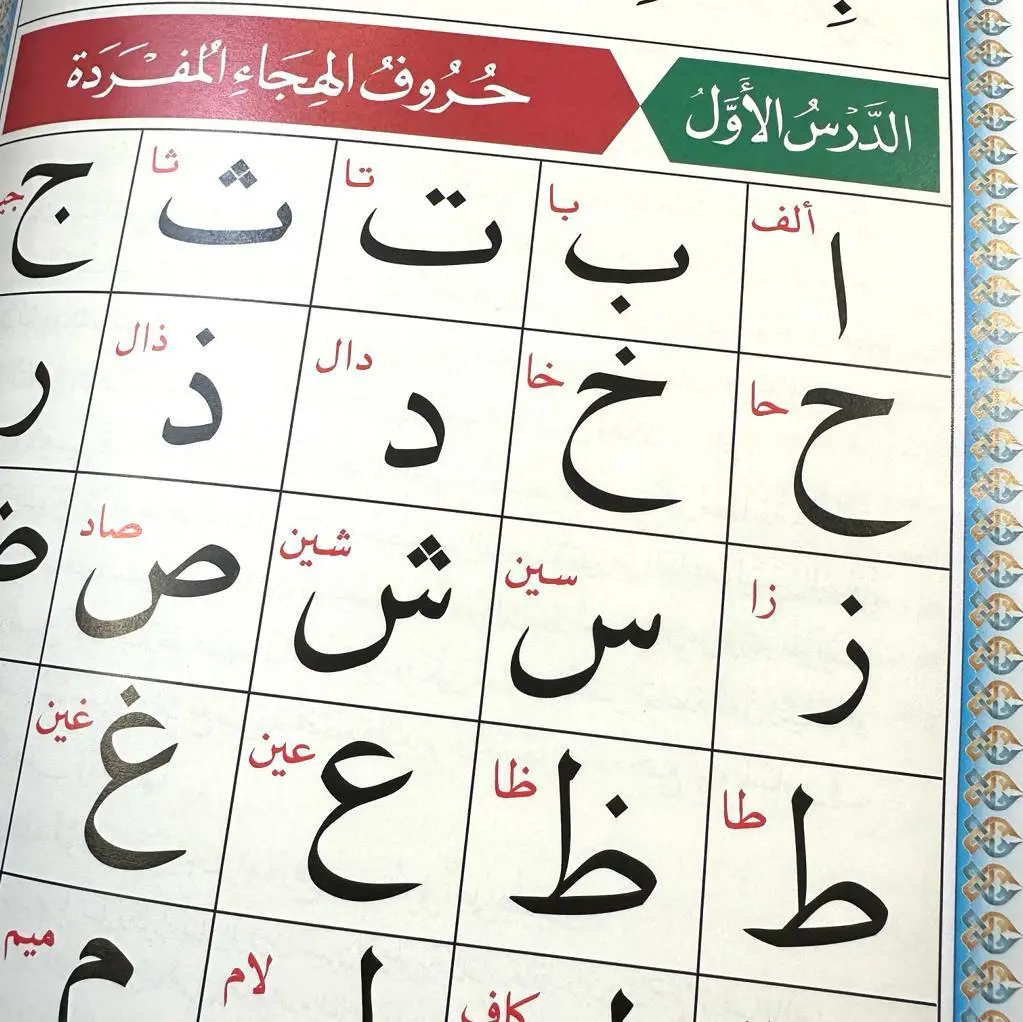 الدَّرْسُ الأَوَّلُ حُرُوفُ الهِجَاءِ المُفْرَدَة
ألف ا با ب تا ت ثا ث ج
حا ح خا خ دال د ذال ذ ر
زا ز سين س شين ش صاد ص
طا ط ظا ظ عين ع غين غ
كاف لام ميم م